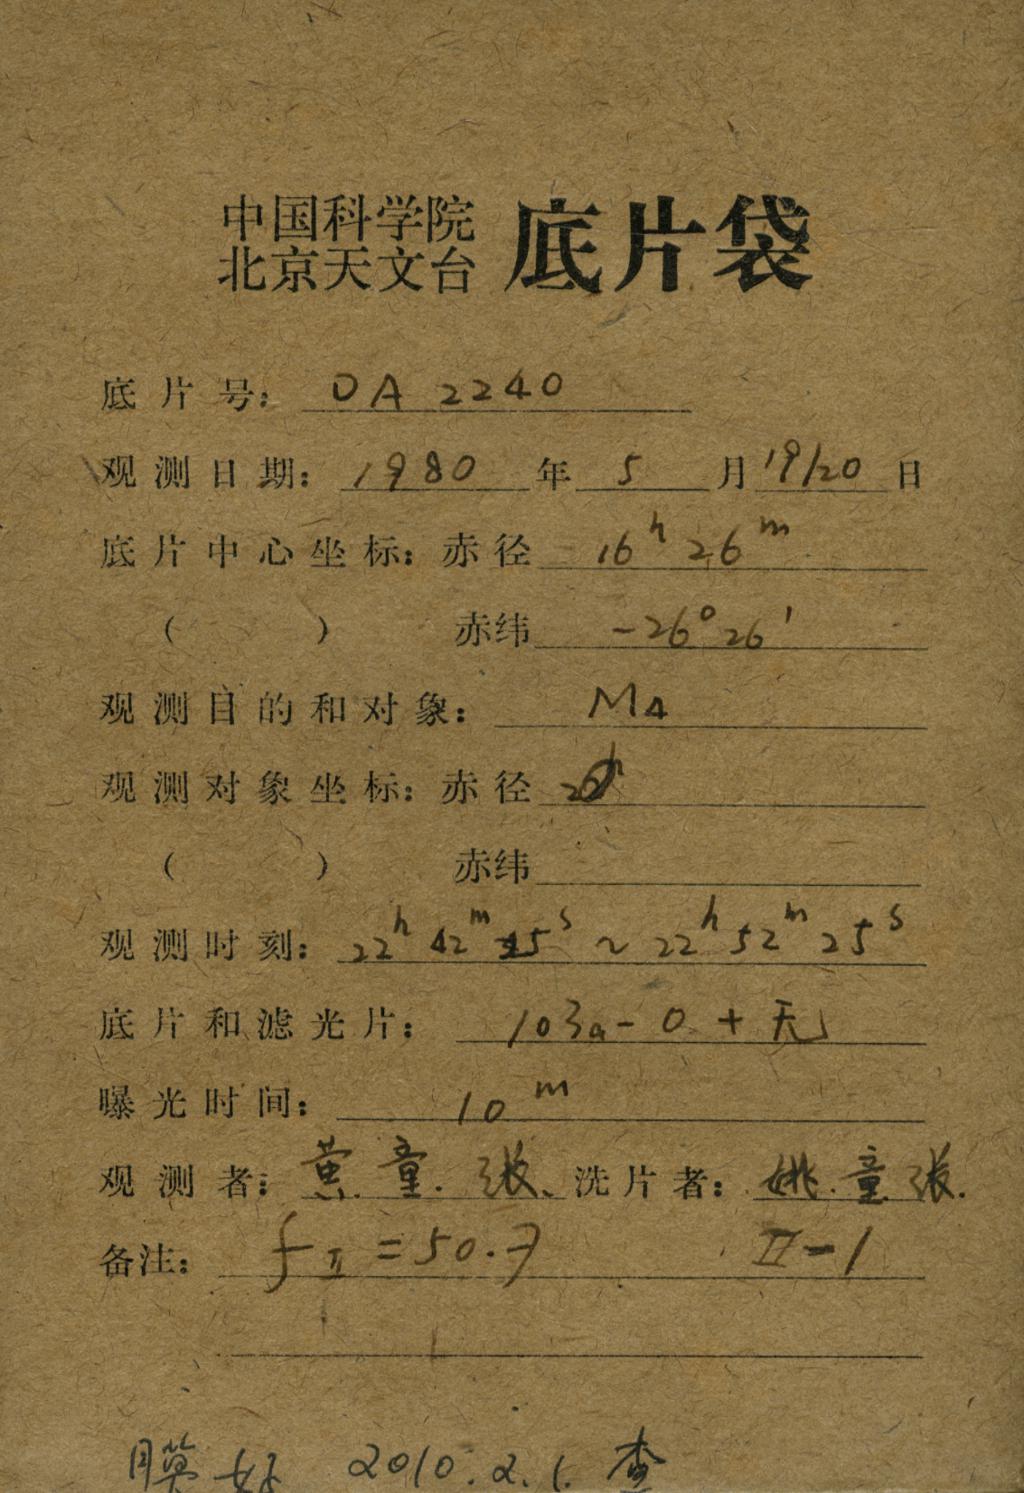 中国科学院
北京天文台 底片袋
底片号: DA 2240
观测日期: 1980 年 5 月 19/20 日
底片中心坐标: 赤径 16h 26m
( ) 赤纬 -26° 26'
观测目的和对象: M4
观测对象坐标: 赤径
( ) 赤纬
观测时刻: 22h 42m 25s ~ 22h 52m 25s
底片和滤光片: 103a-O + 无
曝光时间: 10m
观测者: 黄. 童. 张、 洗片者: 姚. 童 张.
备注: fⅡ = 50.7 Ⅱ-1
膜好 2010.2.1. 查